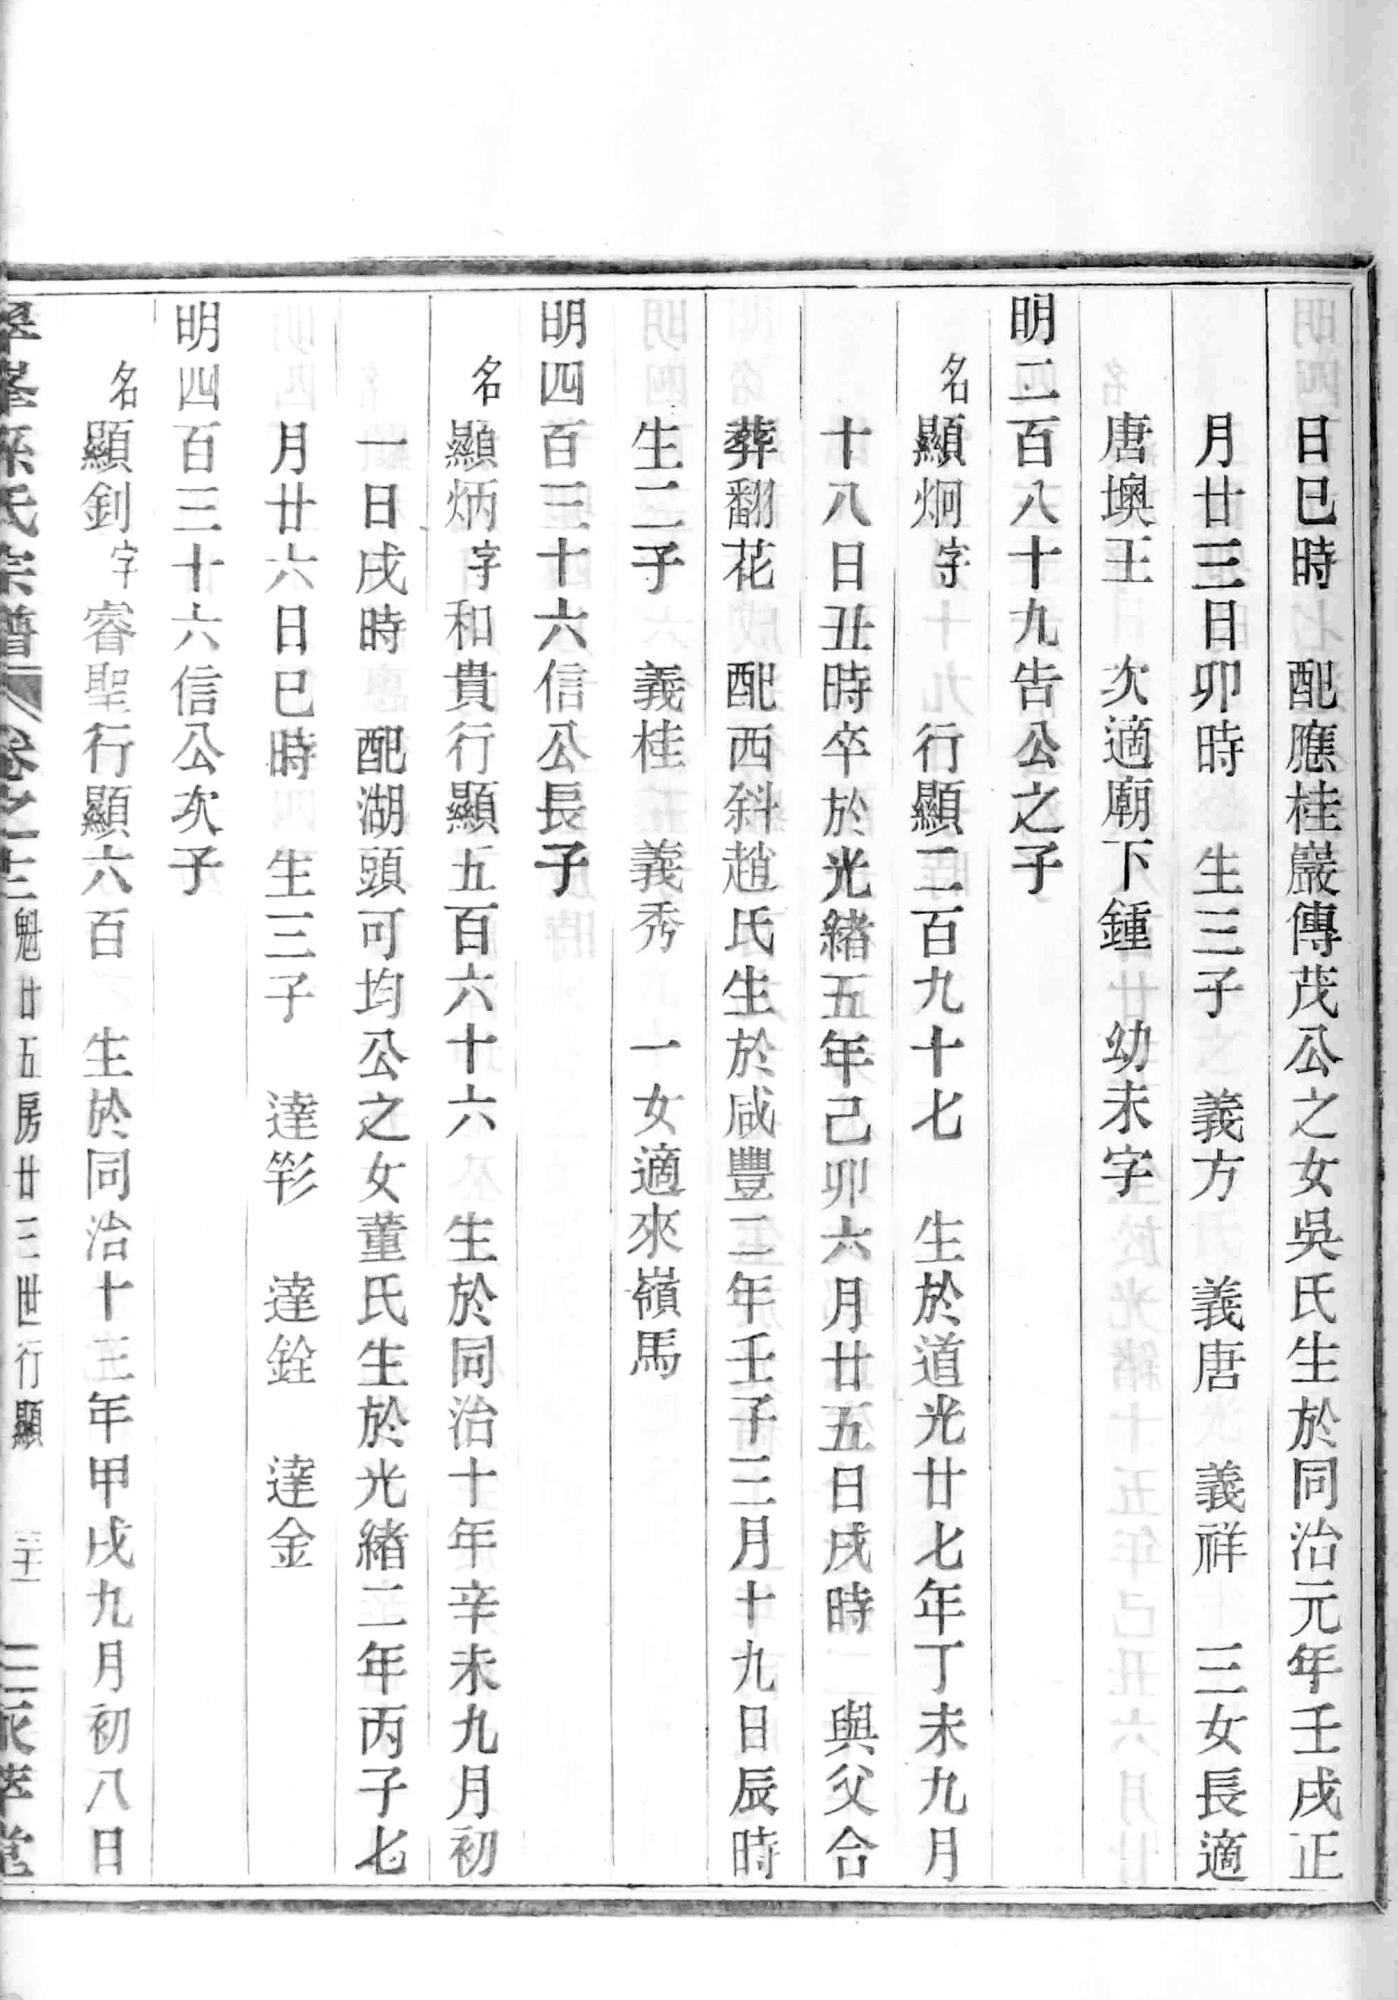 日巳時　配應桂巖傳茂公之女吳氏生於同治元年壬戌正
月廿三日卯時　生三子　義方　義唐　義祥　三女長適
唐墺王　次適廟下鍾　幼未字
明二百八十九告公之子
名顯炯字　　行顯二百九十七　生於道光廿七年丁未九月
十八日丑時卒於光緒五年己卯六月廿五日戌時　與父合
葬翻花　配西斜趙氏生於咸豐二年壬子三月十九日辰時
生二子　義桂　義秀　一女適來嶺馬
明四百三十六信公長子
名顯炳字和貴行顯五百六十六　生於同治十年辛未九月初
一日戌時　配湖頭可均公之女董氏生於光緒二年丙子七
月廿六日巳時　生三子　達釤　達銓　達金
明四百三十六信公次子
名顯釗字睿聖行顯六百　生於同治十三年甲戌九月初八日
氏宗譜　卷之十三　魁廿五房廿三世行顯　堂